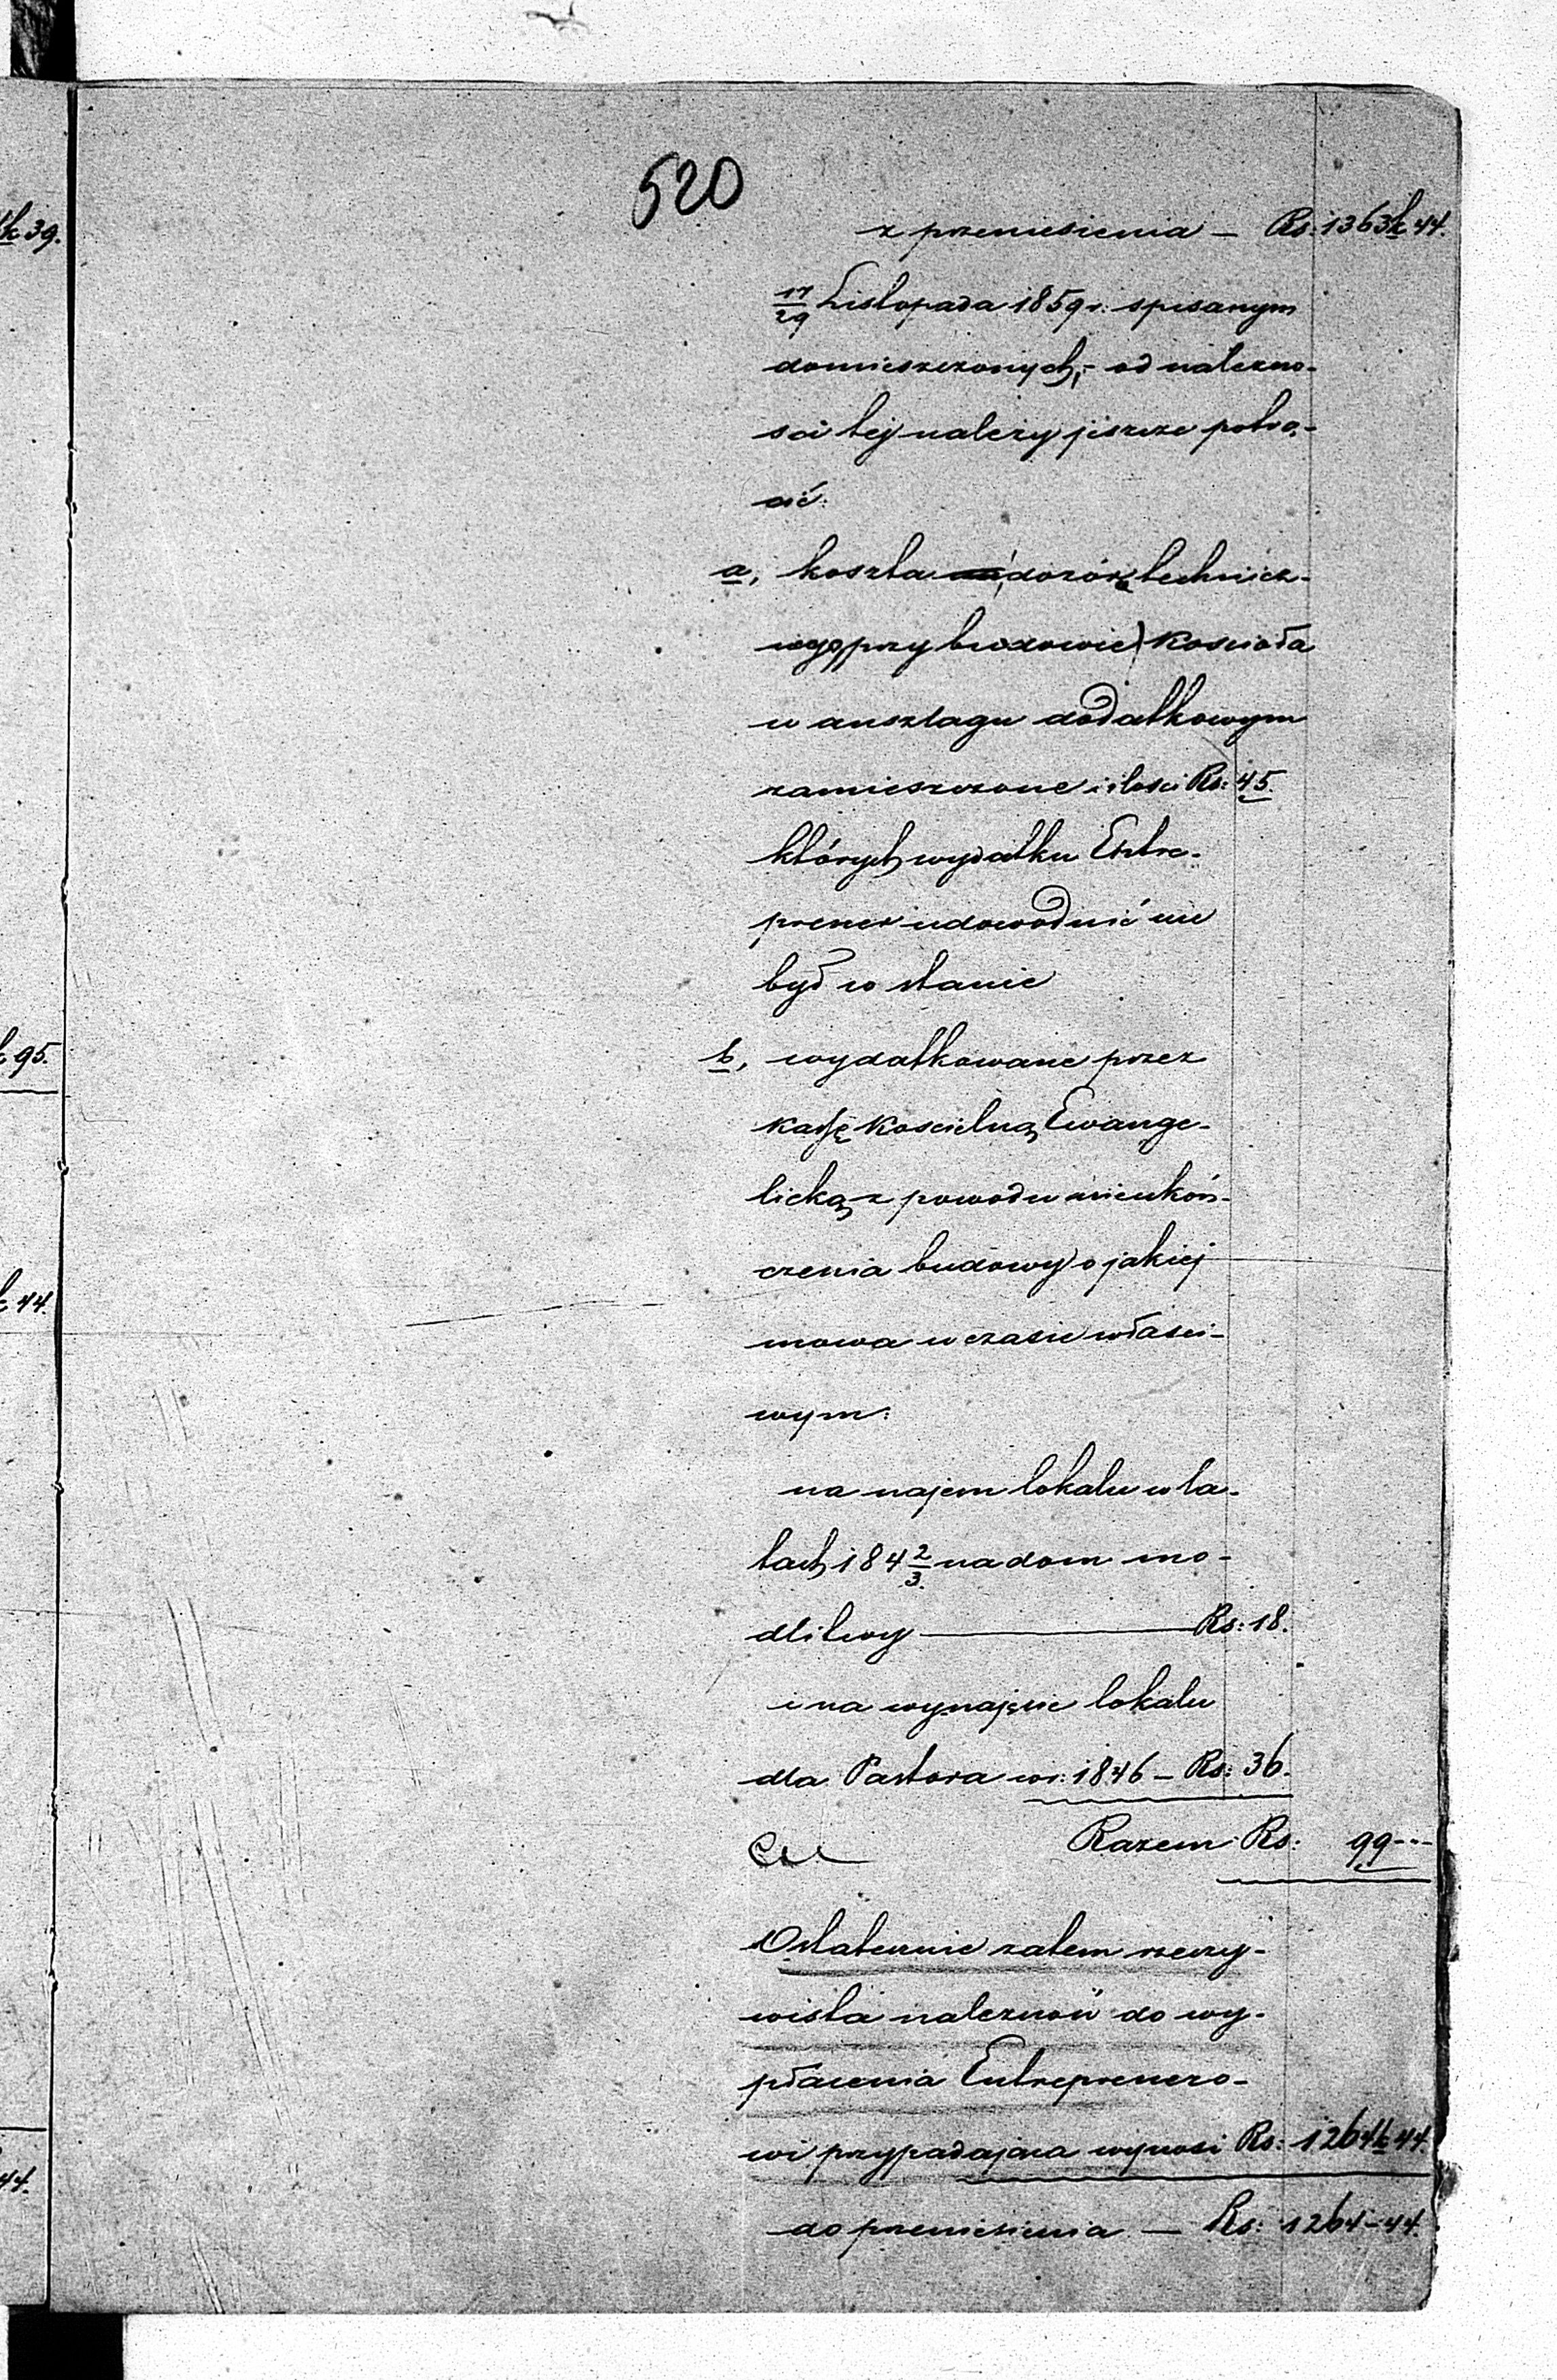 520
k 39.
z przeniesienia – Rs: 1363 k 44.
17/29 Listopada 1859 r: spisanym
domieszczonych, – od należno-
ści tej należy jeszcze potrą-
cić:
a, koszta dozoru technicz-
nego przy budowie Kościoła
w anszlagu dodatkowym
zamieszczone i ilości Rs: 45.
których wydatku Entre-
prener udowodnić nie
był w stanie
b, wydatkowane przez
k 95.
kassę Kościelną Ewange-
licką z powodu nieukoń-
czenia budowy o jakiej
k 44.
mowa w czasie właści-
wym:
na najem lokalu w la-
tach 184 2/3. na dom mo-
dlitwy — Rs: 18.
i na wynajęcie lokalu
dla Pastora w r: 1846 – Rs: 36.
Razem Rs: 99 ---
Ostatecznie zatem rzeczy-
wista należność do wy-
płacenia Entreprenero-
wi przypadająca wynosi Rs: 1264 k 44.
44.
do przeniesienia — Rs: 1264 – 44.